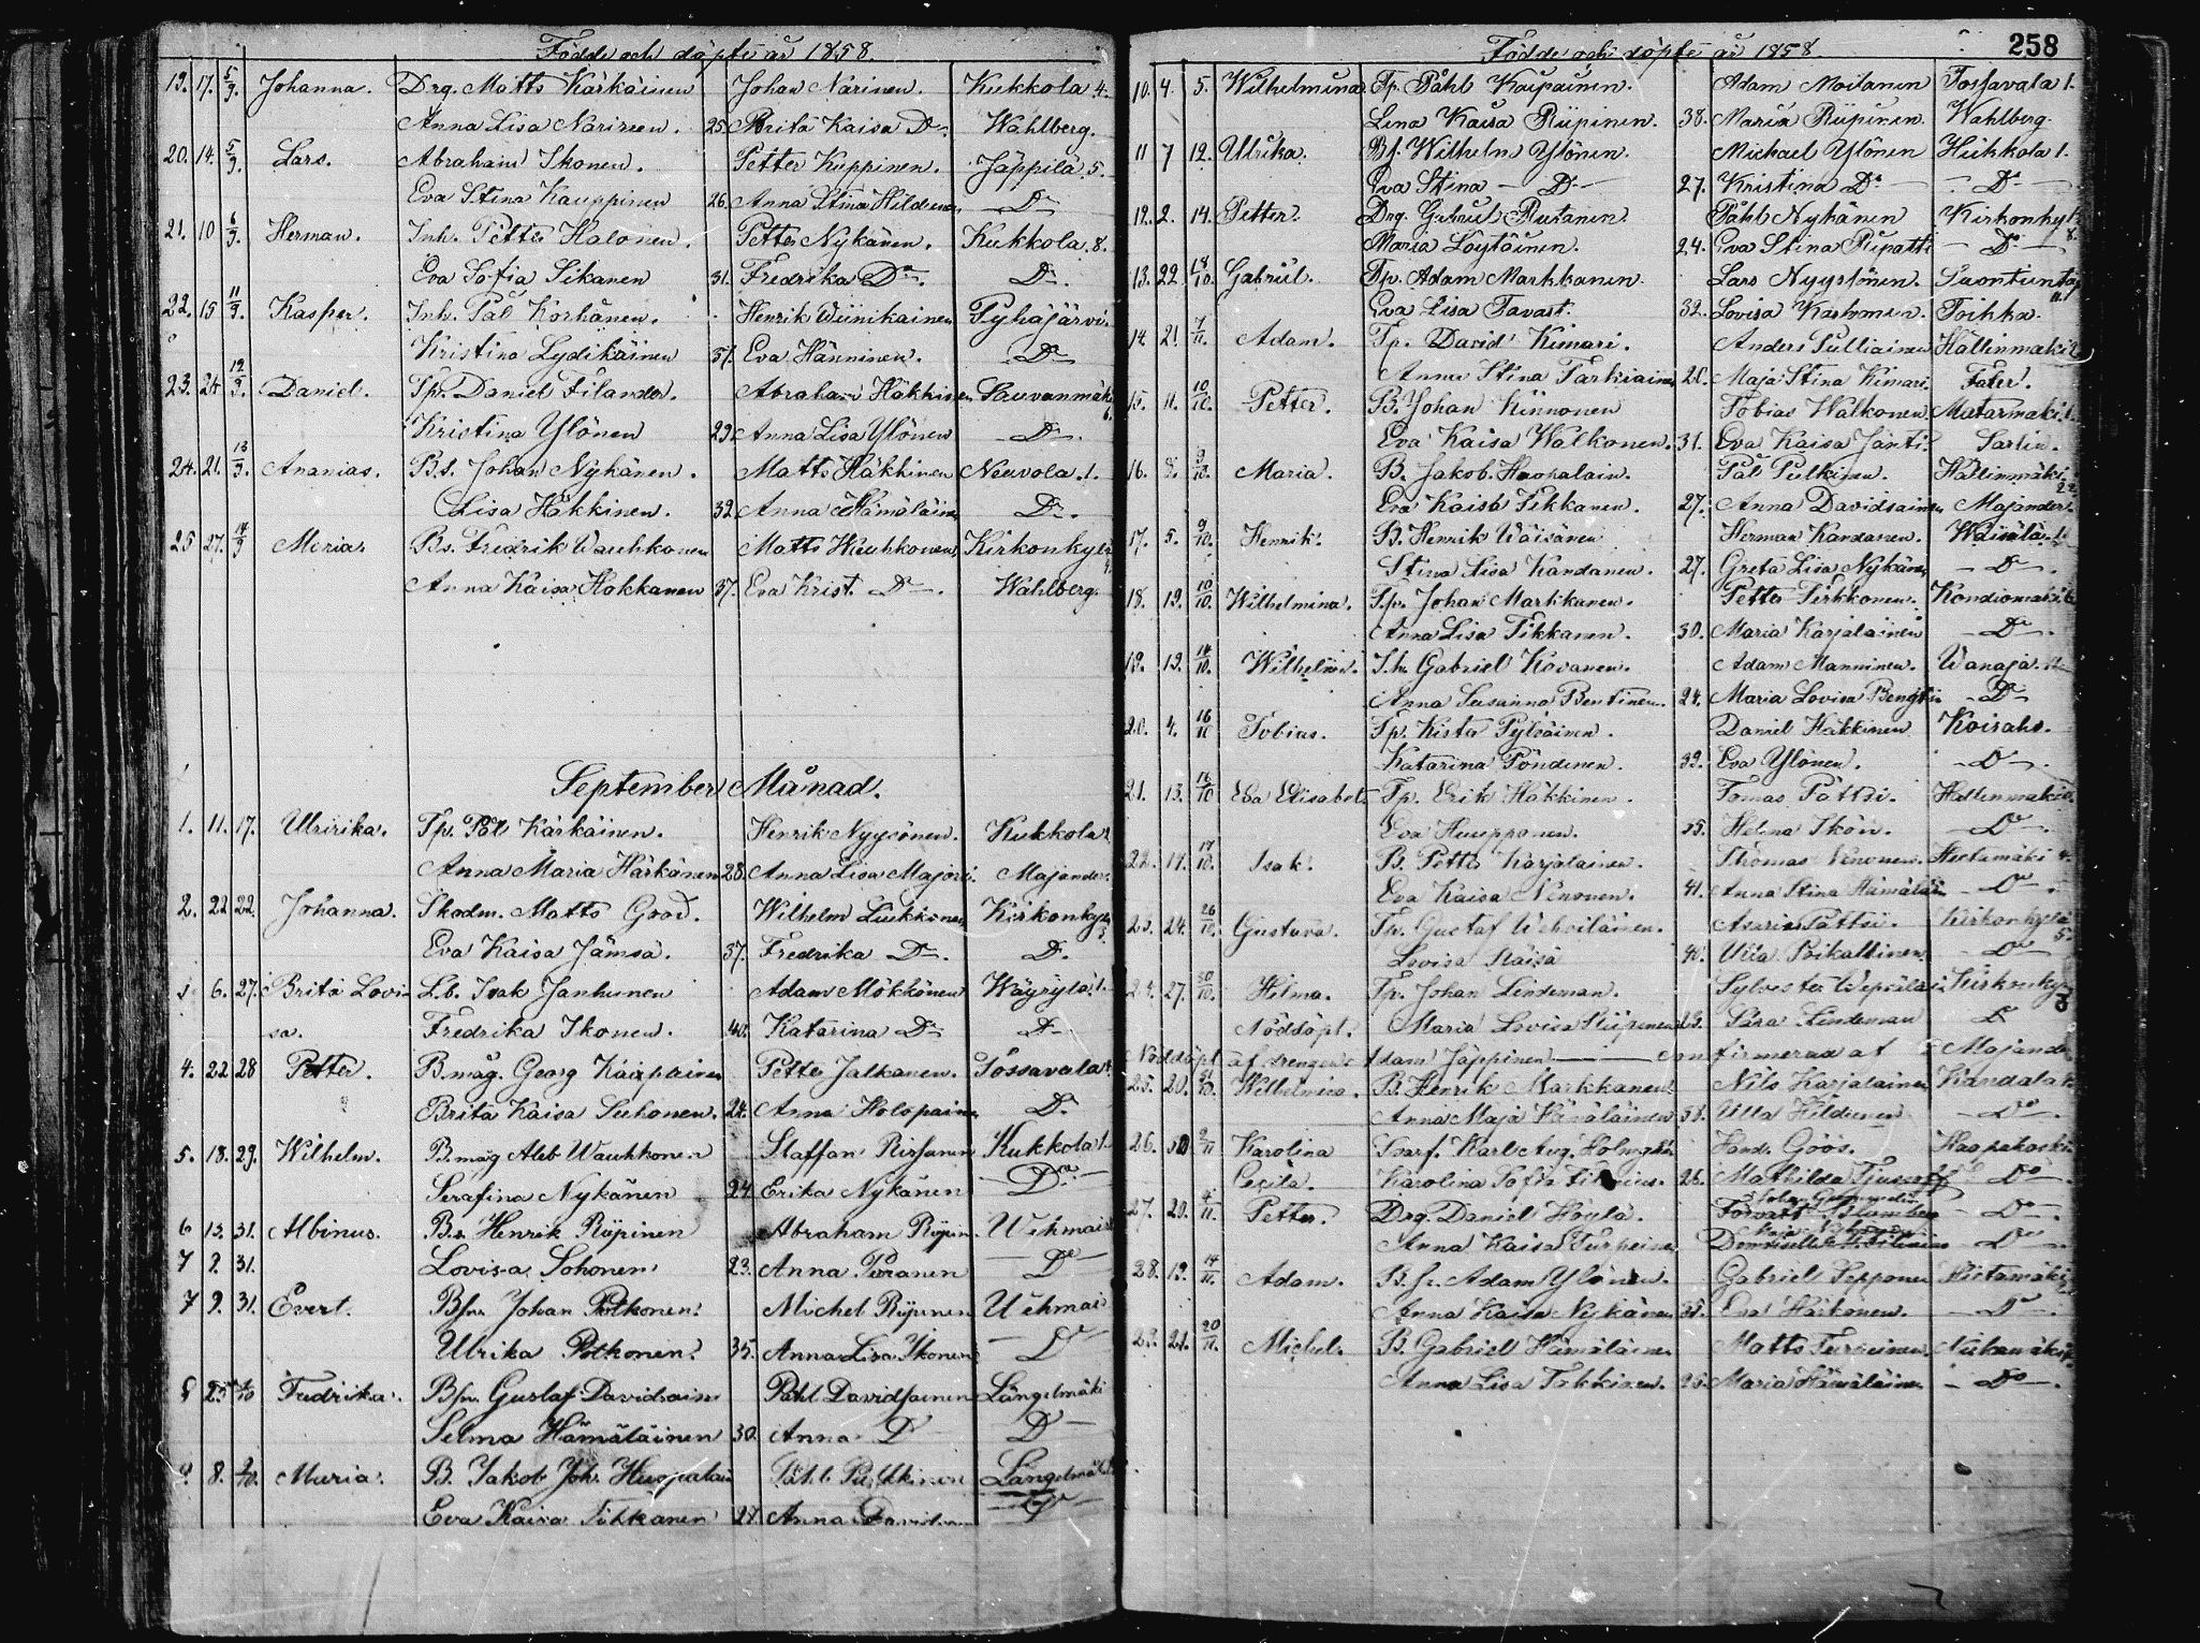 Födde och döpte år 1858.
19. 17. 5/9. Johanna. Drg. Matts Kärkäinen Johan Narinen. Kukkola 4.
Anna Lisa Narinen. 25. Brita Kaisa Do. Wahlberg.
20. 14. 5/9. Lars. Abraham Ikonen. Petter Kuppinen. Jäppilä 5.
Eva Stina Kauppinen 26. Anna Stina Hildunen Do
21. 10 6/9. Herman. Inh. Petter Halonen. Petter Nykänen. Kukkola. 8.
Eva Sofia Sikanen 31. Fredrika Do. Do.
22. 15 11/9. Kasper. Inh. Pål Korhänen. Henrik Wiinikainen Pyhäjärvi.
Kristina Lydikäinen 37. Eva Hänninen. Do
23. 24 12/9. Daniel. Tp. Daniel Filander. Abraham Häkkinen Sauvanmäki 6.
Kristina Ylönen 29. Anna Lisa Ylönen Do.
24. 21. 13/9. Ananias. Bs. Johan Nykänen. Matts Häkkinen Neuvola. 1.
Lisa Häkkinen. 32 Anna Hämäläin Do.
25 27. 14/9 Maria. Bs. Fredrik Wauhkonen Matts Wauhkonen, Kirkonkylä
Anna Kaisa Hokkanen 37. Eva Krist. Do. Wahlberg.
September Månad.
1. 11. 17. Ulririka. Tp. Pål Kärkäinen. Henrik Nyysönen. Kukkola
Anna Maria Härkänen 28. Anna Lisa Major. Majander.
2. 22 22. Johanna. Skodm. Matts Good. Wilhelm Liukkonen Kirkonky 3.
Eva Kaisa Jämsa. 37. Fredrika Do. D.
6. 27. Brita Lovi- L.b. Isak Janhunen Adam Mökkönen Wäyrylä. 1.
sa. Fredrika Ikonen. 40. Katarina Do Do
4. 22 28 Petter. B.måg. Georg Kaipainen Petter Jalkanen. Tossavala
Brita Kaisa Suhonen. 24. Anna Holopain Do.
5. 18. 29. Wilhelm. B.måg Aleb Wauhkonen Staffan Kukkola 1.
Serafina Nykänen 24 Erika Nykänen Do.
6 13. 31. Albinus. Bs. Henrik Riipinen Abraham Riipin. Wehmais
7 2. 31. Lovisa Sohonen 23. Anna Puranen Do
7 9. 31. Evert. Bsn. Johan Potkonen. Michel Riipinen Wehmais
Ulrika Potkonen. 35. Anna Lisa Ikonen Do
8 25 Fredrika. Bsn. Gustaf Davidsain Påhl Davidsainen Längelmäki
Selma Hämäläinen 30. Anna Do Do
9 8. 2/10. Maria. B. Jakob Joh. Huopalain Påhl Pulkkinen Längelmäki
Eva Kaisa Tikkanen 27. Anna Davidsain Do
Födde och döpte år 1858. 258
10. 4. 5. Wilhelmina. Tp. Påhl Kaupainen. Adam Moilanen Tossavala 1.
Lena Kaisa Riipinen. 38. Maria Riipinen. Wahlberg.
11 7 12. Ulrika. Bs. Wilhelm Ylönen. Michael Ylönen Hukkola 1.
Eva Stina Do 27. Kristina Do Do
12. 2. 14. Petter. Drg. Gabriel Rutanen. Påhl Nykänen Kirkonky 8.
Maria Löytäinen. 24. Eva Stina Ripatti Do
13. 22 18/10. Gabriel. Tp. Adam Markkanen. Lars Nyyssönen. Suontun
Eva Lisa Tavast. 32. Lovisa Toikka.
14. 21. 7/11. Adam. Tp. David Kimari. Anders Pulliainen Hällinmäki
Anna Stina Tarkiainen Maja Stina Kimari. Fater.
15. 11. 10/10. Petter. B. Johan Kinnonen Tobias Walkonen Matarmäki. 1.
Eva Kaisa Walkonen. 31. Eva Kaisa Jänti. Sarlin.
16. 8. 9/10. Maria. B. Jakob Huopalain. Pål Pulkinen. Hällinmäki 22.
Eva Kaisa Tikkanen. 27. Anna Davidsainen Majander.
17. 5. 9/10. Henrik. B. Henrik Wäisänen Herman Kandanen. Wäisälä 1.
Stina Lisa Kandanen. 27. Greta Lisa Nykänen Do.
18. 19. 10/10. Wilhelmina. Tp. Johan Markkanen. Petter Pirkkonen. Kondiomäki 6
Anna Lisa Tikkanen. 30. Maria Karjalainen Do.
19. 19. 14/10. Wilhelm. I.h. Gabriel Kovanen. Adam Manninen. Wanaja.
Anna Susanna Bentinen. 24. Maria Lovisa Do
20. 4. 16/10 Tobias. Tp. Kista Pylväinen. Daniel Häkkinen Koisaho.
Katarina Pöndinen. 39. Eva Ylönen. Do.
21. 13. 16/10 Eva Elisabet. Tp. Erik Häkkinen. Tomas Pättsi. Hällinmäki
Eva Huupponen. 35. Helena Ikön. Do
22. 17. 17/10. Isak. B. Petter Karjalainen. Thomas Nenonen. Hietamäki 4.
Eva Kaisa Nenonen. 41. Anna Stina Hämäläin Do.
23. 24. 26/10. Gustava. Th. Gustaf Wehviläinen. Asarias Pättsi. Kirkonkylä 5.
Lovisa Räisä 41. Ulla Poikallinen. Do
24. 27. 30/10. Hilma. Tp. Johan Lindeman. Sylvester Kirkonky 8
Nöddöpt. Maria Lovisa Riipinen 23. Sara Lindeman Do
Nöddöpt af drengen Adam Jäppinen confirmerad af Majander
25. 20. 31/10. Wilhelmina. B. Henrik Markkanen. Nils Karjalainen Kandala
Anna Maja Hämäläinen 38. Ulla Hildunen Do
26. 30 2/11 Karolina Karl Aug. Holmg Hand. Göös. Haapakoski
Cecilia. Karolina Sofia 26. Mathilda Do
27. 20. 4/11. Petter. Drg. Daniel Höylä. Do.
Anna Kaisa Turpeinen Do
28. 19. 14/11. Adam. B.h. Adam Ylönen. Gabriel Sepponen Hietamäki
Anna Kaisa Nykänen 35. Eva Härkönen. Do.
29. 21. 20/11. Michel. B. Gabriel Hämäläinen Matts Turpeinen. Niskamäki
Anna Lisa Takkinen. 25. Maria Hämäläinen Do.